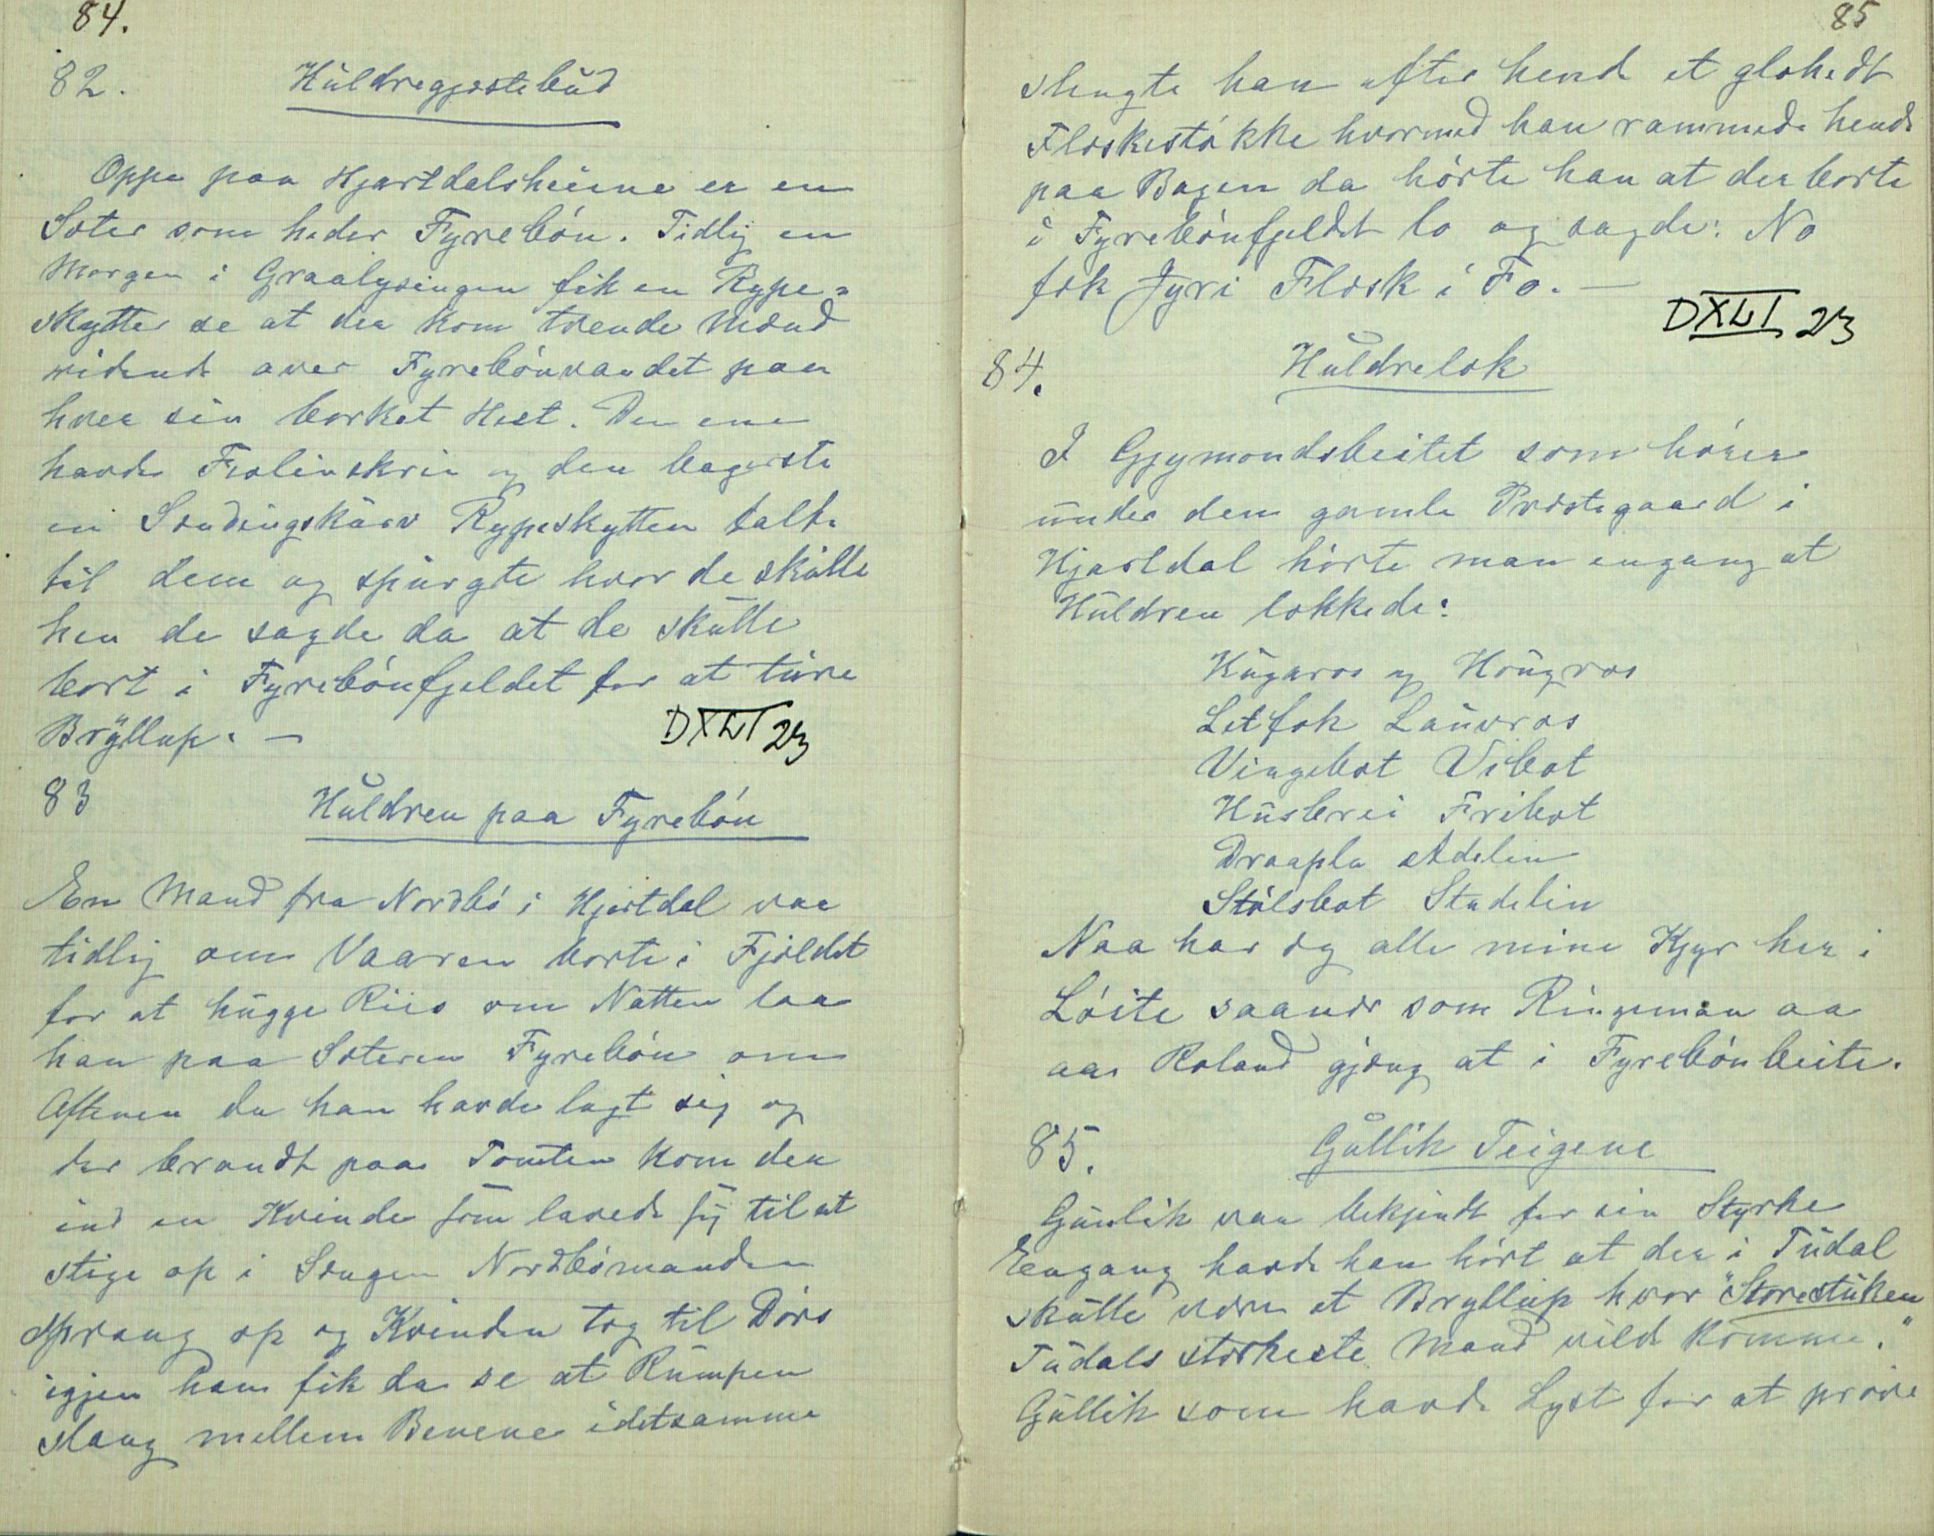 84.
82. Huldregjæstebud
Oppe paa Hjartdalsheiene er en
Sæter som heder Fyrebön. Tidlig en
Morgen i Graalysingen fik en Rype-
skytter se at der kom trende Mænd
ridende over Fyrebönvandet paa
hver sin borket Hest. Den ene
havde Fiolinskrin og den bagerste
en Sendingskurv Rypeskytten talte
til dem og spurgte hvor de skulle
hen de sagde da at de skulle
bort i Fyrebönfjeldet for at ture
Bryllup. —
DXLI 23
83 Huldren paa Fyrebön
En Mand fra Nordbö i Hjartdal var
tidlig om Vaaren borte i Fjeldet
for at hugge Riis om Natten laa
han paa Sæteren Fyrebön om
Aftenen da han havde lagt sig og
der brandt paa Tomten kom der
ind en Kvinde som lavede sig til at
stige op i Sengen Nordbömanden
sprang op og Kvinden tog til Dörs
igjen han fik da se at Rumpen
slang mellem Benene idetsamme
85
slengte han efter hende et glohedt
Fleskestökke hvormed han rammede hende
paa Bagen da hörte han at der borte
i Fyrebönfjeldet lo og sagde: No
fek Jyri Flesk i Fo. —
DXLI 23
84. Huldrelok
I Gjymondsbeitet som hörer
under den gamle Præstegaard i
Hjartdal hörte man engang at
Huldren lokkede:
Kugaros og Haugros
Letfok Lauvros
Vingebot Vibot
Husbrei Fribot
Draapla Adelin
Stölsbot Stadelin
Naa har eg alle mine Kjyr her i
Löite saanær som Ringeman aa
aa Roland gjæng at i Fyrebönbeite.
85. Gullik Teigene
Gunlik var bekjendt for sin Styrke
Engang havde han hört at der i Tudal
skulle være et Bryllup hvor "Storestuken
Tudals sterkeste Mand vilde komme."
Gullik som havde Lyst for at pröve